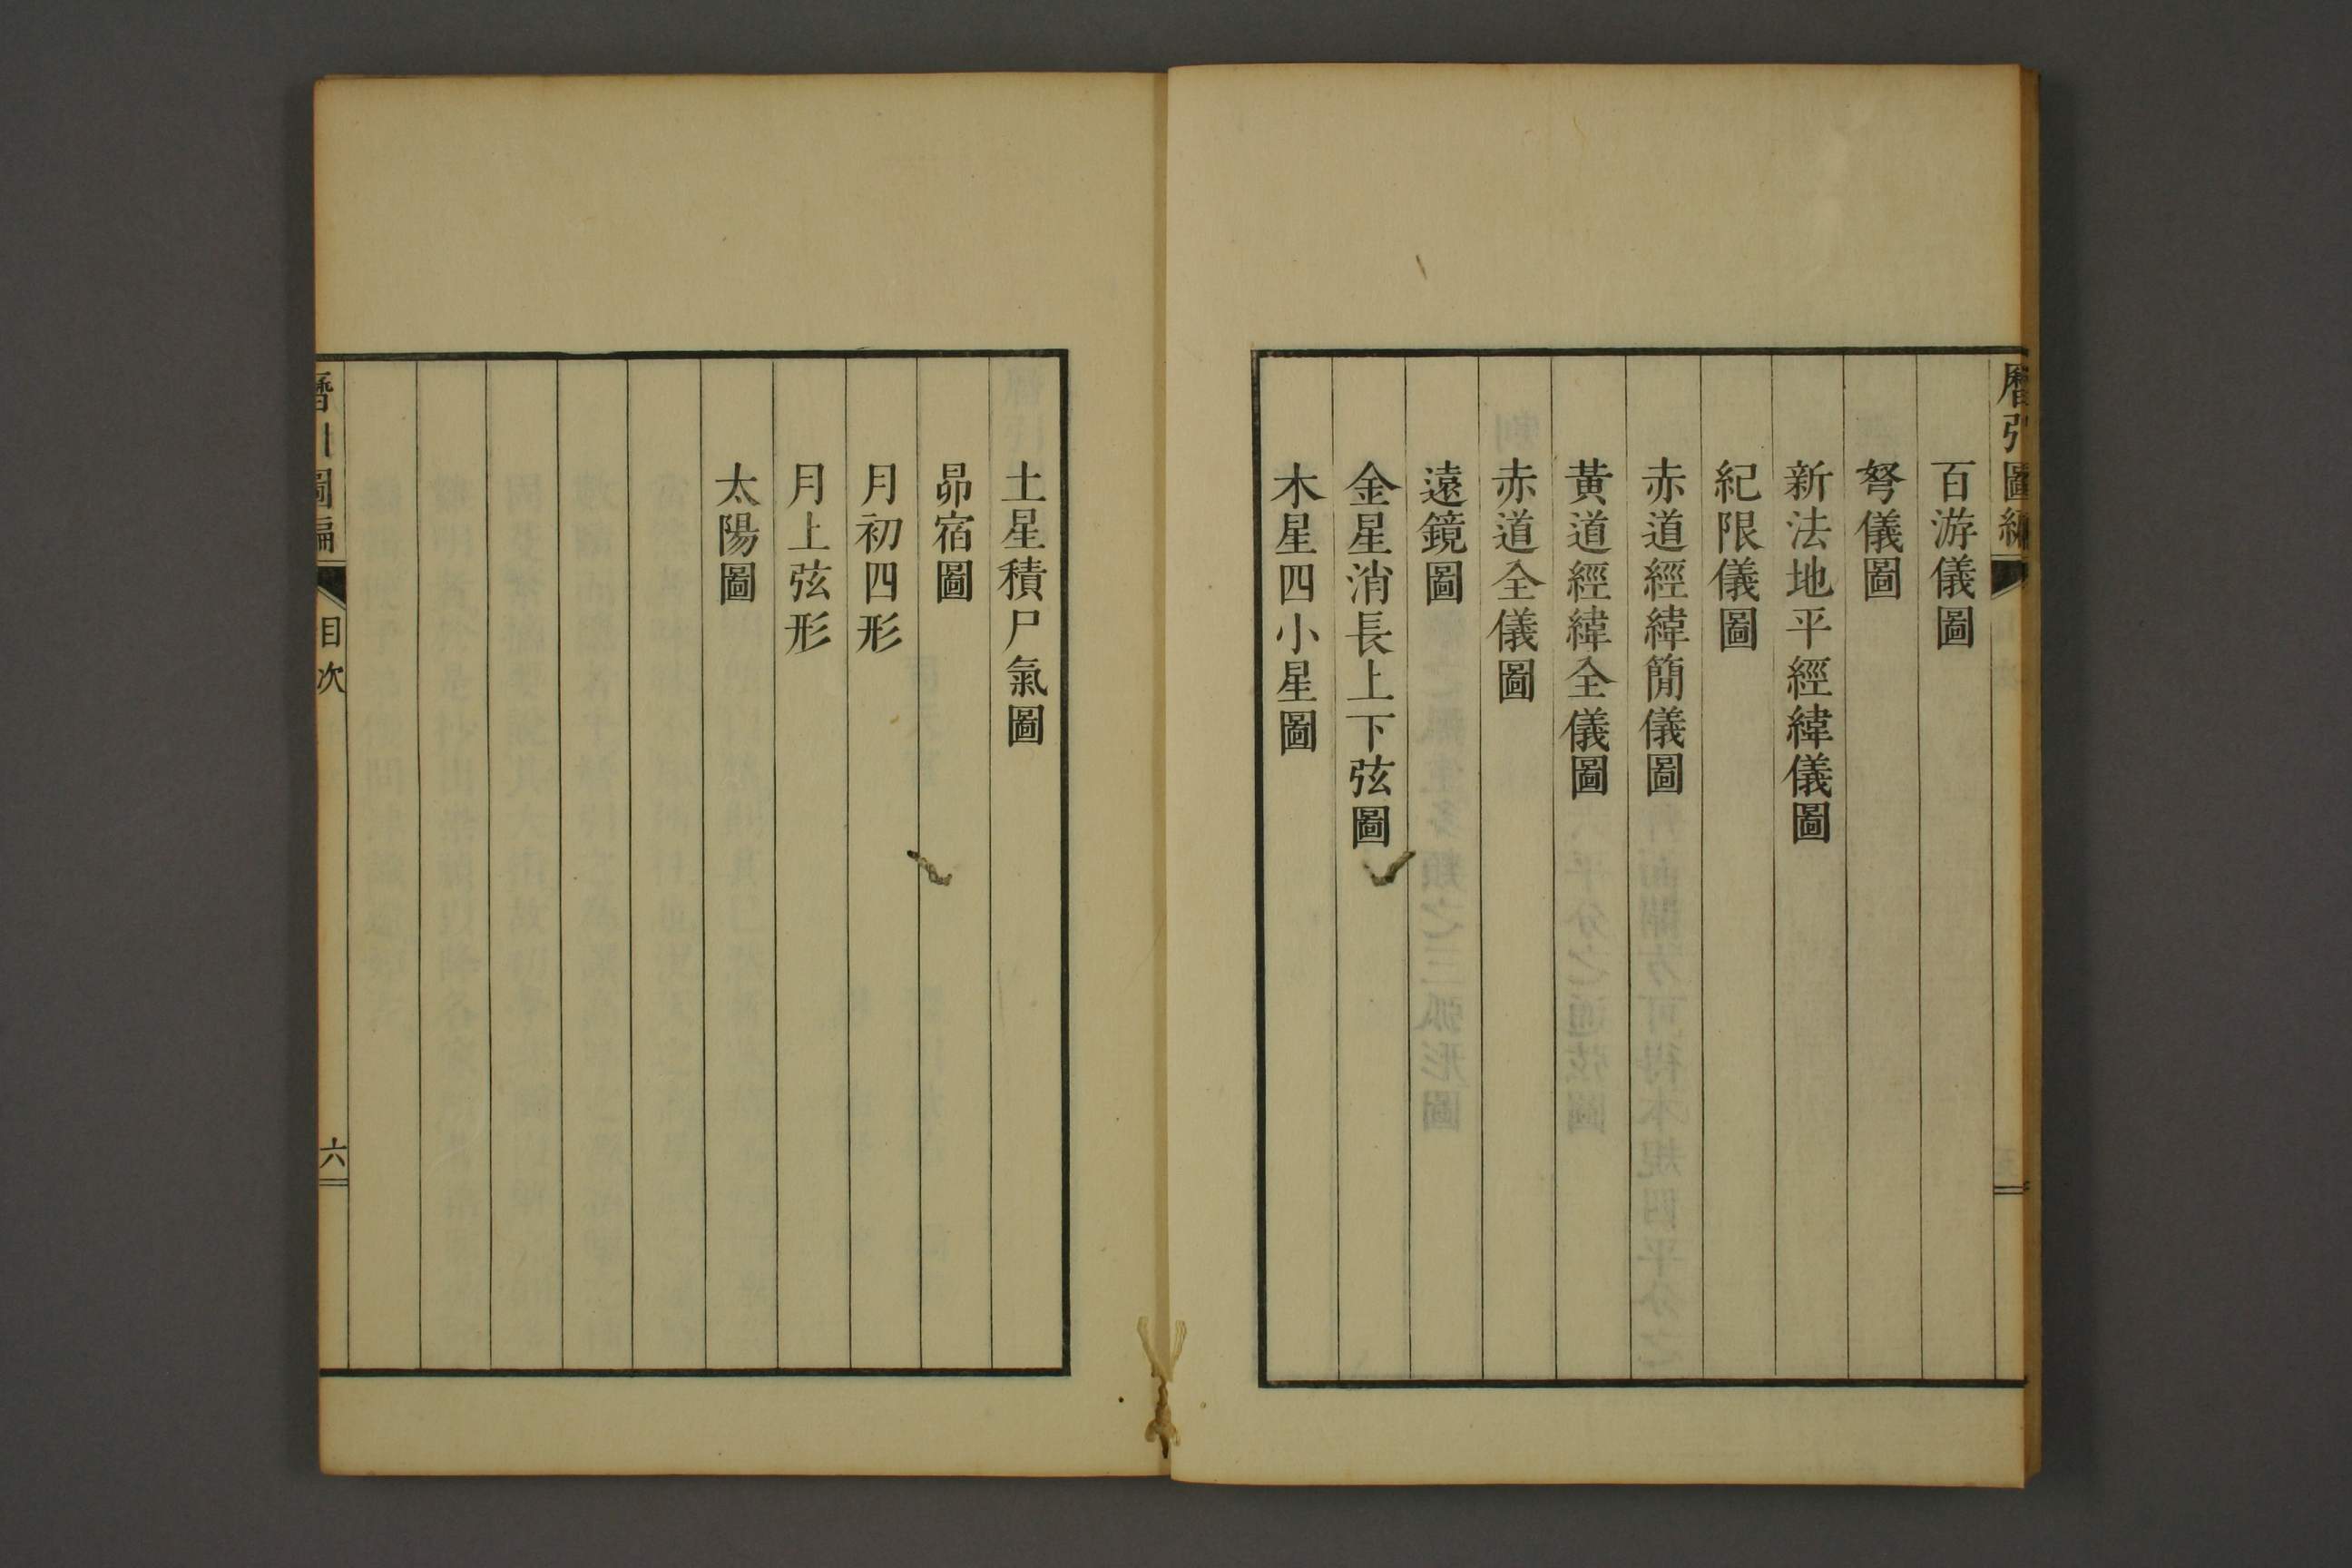 曆引圖編
百游儀圖
弩儀圖
新法地平經緯儀圖
紀限儀圖
赤道經緯簡儀圖
黃道經緯全儀圖
赤道全儀圖
遠鏡圖
金星消長上下弦圖
木星四小星圖
土星積尸氣圖
昴宿圖
月初四形
月上弦形
太陽圖
曆引圖編
目次
六